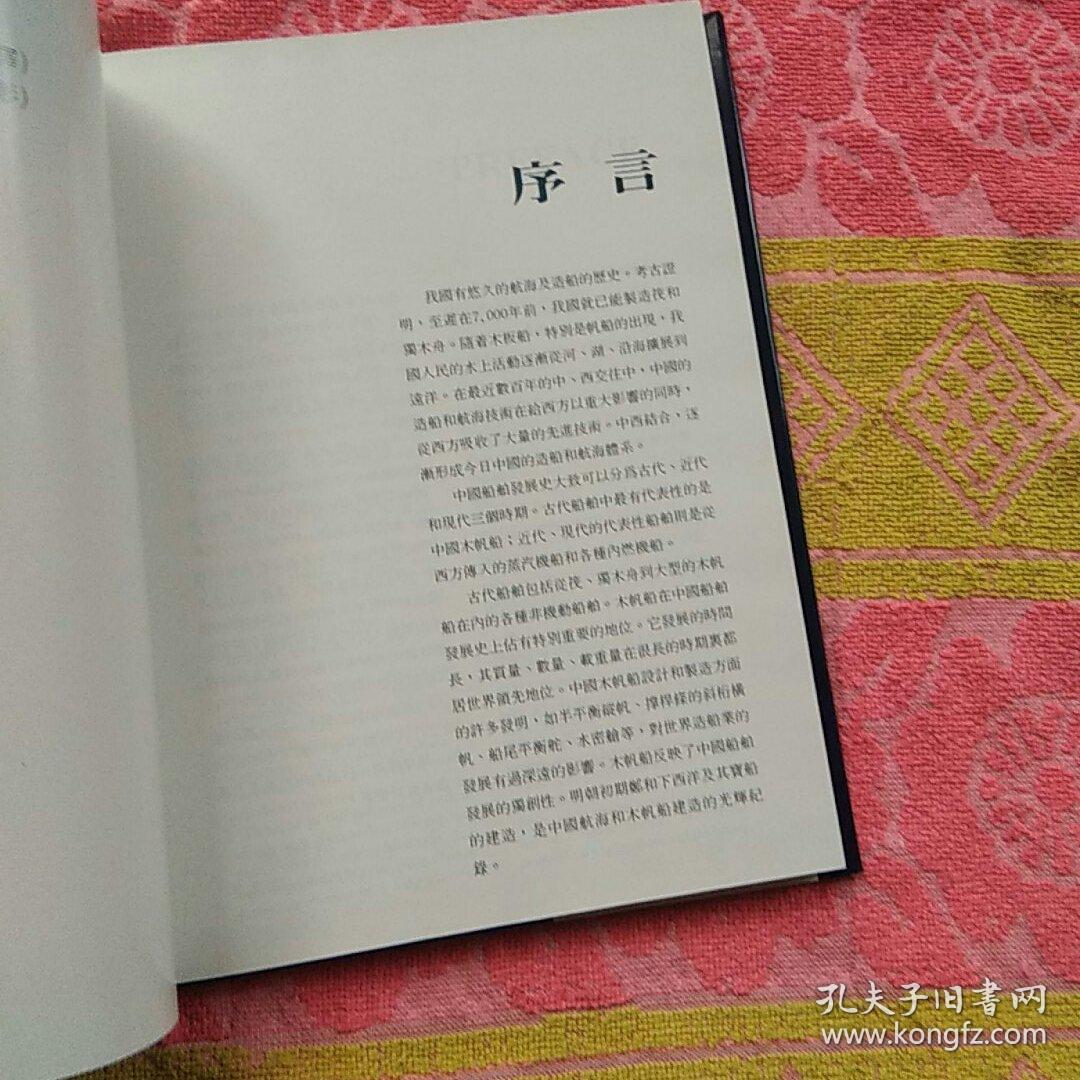 序言
我國有悠久的航海及造船的歷史。考古證
明，至遲在7,000年前，我國就已能製造筏和
獨木舟。隨着木板船，特別是帆船的出現，我
國人民的水上活動逐漸從河、湖、沿海擴展到
遠洋。在最近數百年的中、西交往中，中國的
造船和航海技術在給西方以重大影響的同時，
從西方吸收了大量的先進技術。中西結合，逐
漸形成今日中國的造船和航海體系。
中國船舶發展史大致可以分爲古代、近代
和現代三個時期。古代船舶中最有代表性的是
中國木帆船；近代、現代的代表性船舶則是從
西方傳入的蒸汽機船和各種內燃機船。
古代船舶包括從筏、獨木舟到大型的木帆
船在內的各種非機動船舶。木帆船在中國船舶
發展史上佔有特別重要的地位。它發展的時間
長，其質量、數量、載重量在很長的時期裏都
居世界領先地位。中國木帆船設計和製造方面
的許多發明，如半平衡縱帆、撐桿條的斜桁橫
帆、船尾平衡舵、水密艙等，對世界造船業的
發展有過深遠的影響。木帆船反映了中國船舶
發展的獨創性。明朝初期鄭和下西洋及其寶船
的建造，是中國航海和木帆船建造的光輝紀
錄。
孔夫子旧書网
www.kongfz.com